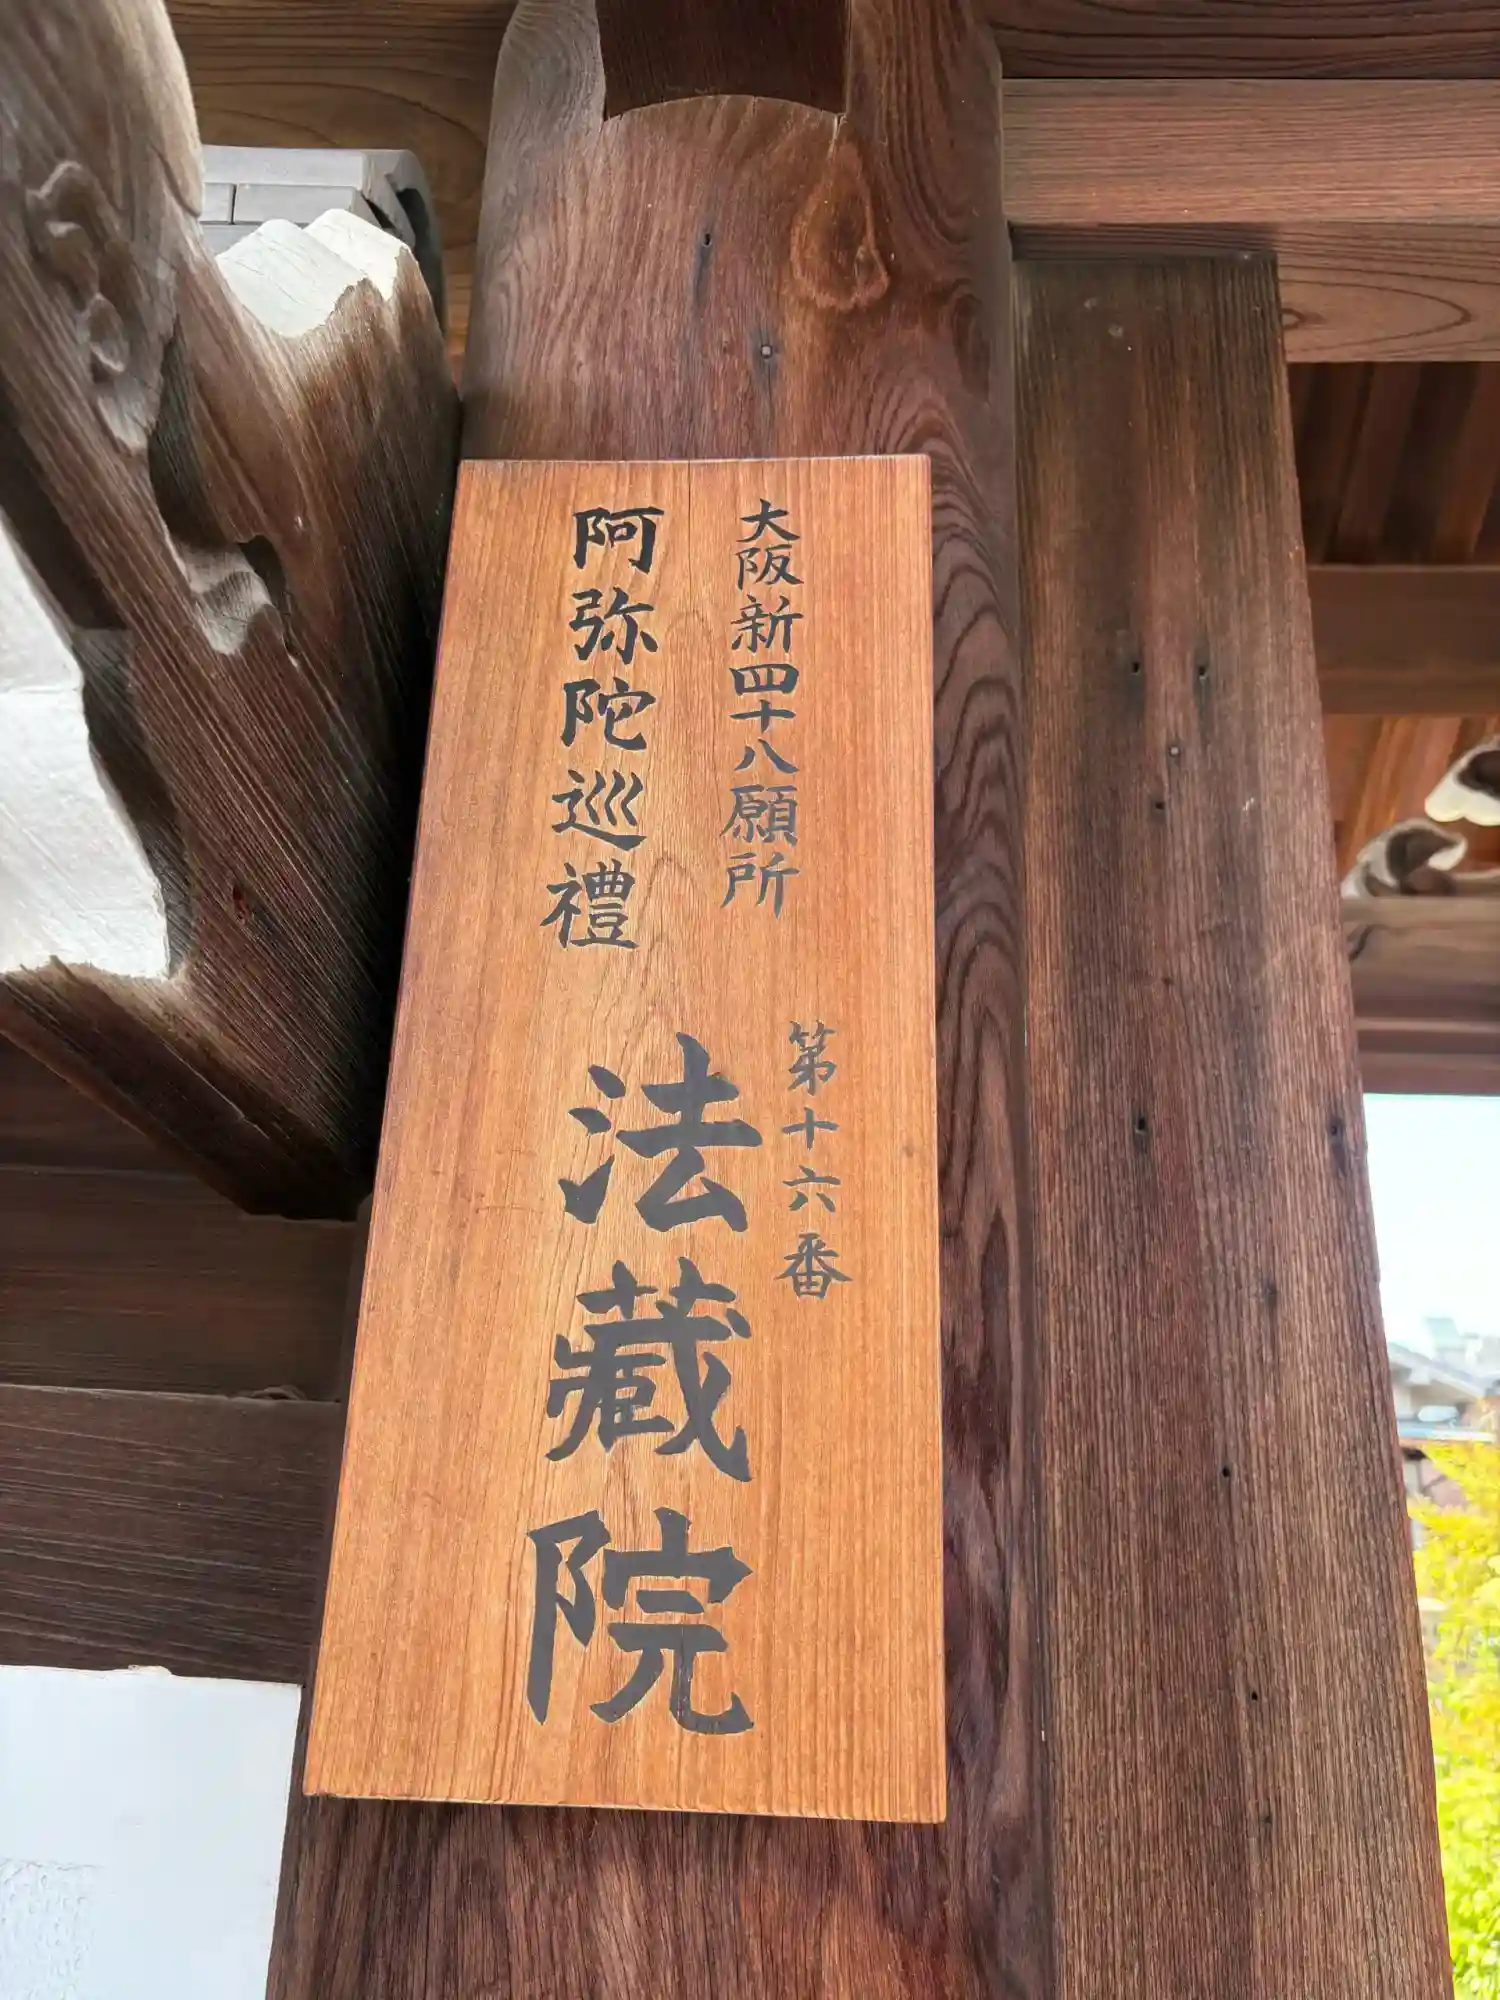 大阪新四十八願所
第十六番
阿弥陀巡禮
法藏院